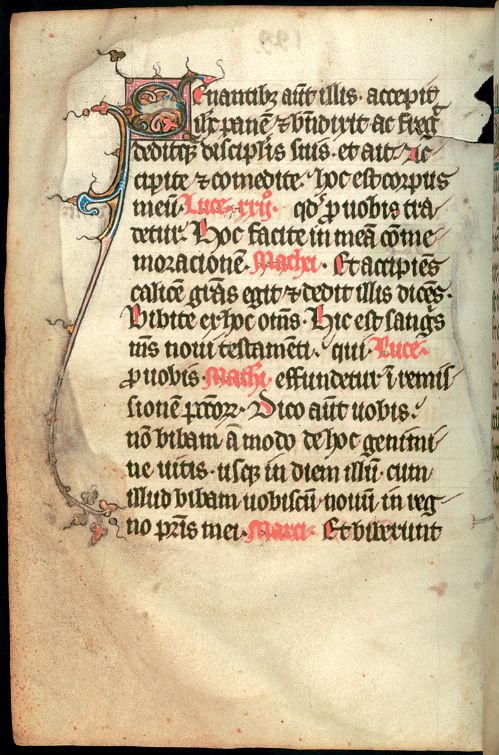 Cenantibꝫ aūt illis · accepit
ihc̄ panē ⁊ bn̄dixit ac freḡ
deditqꝫ disciplīs suis · et ait · Ac
cipite ⁊ comedite · hoc est corpus
meū · Luce · xxijº · qd̄ ꝓ uobis tra
detur · Hoc facite in meā cōme
moracionē · Mathei · Et accipiēs
calicē grās egit ⁊ dedit illis dicēs ·
Bibite ex hoc om̄s · Hic est sangīs
mīs noui testamēti · qui · Luce ·
ꝓ uobis · Mathi · effundetur ī remis
sionē pcc̄oꝝ · Dico aūt uobis ·
nō bibam ā modo de hoc genimi
ne uitis · usqꝫ in diem illū · cum
illud bibam uobiscū nouū in reg
no pr̄is mei · Marci · Et biberunt